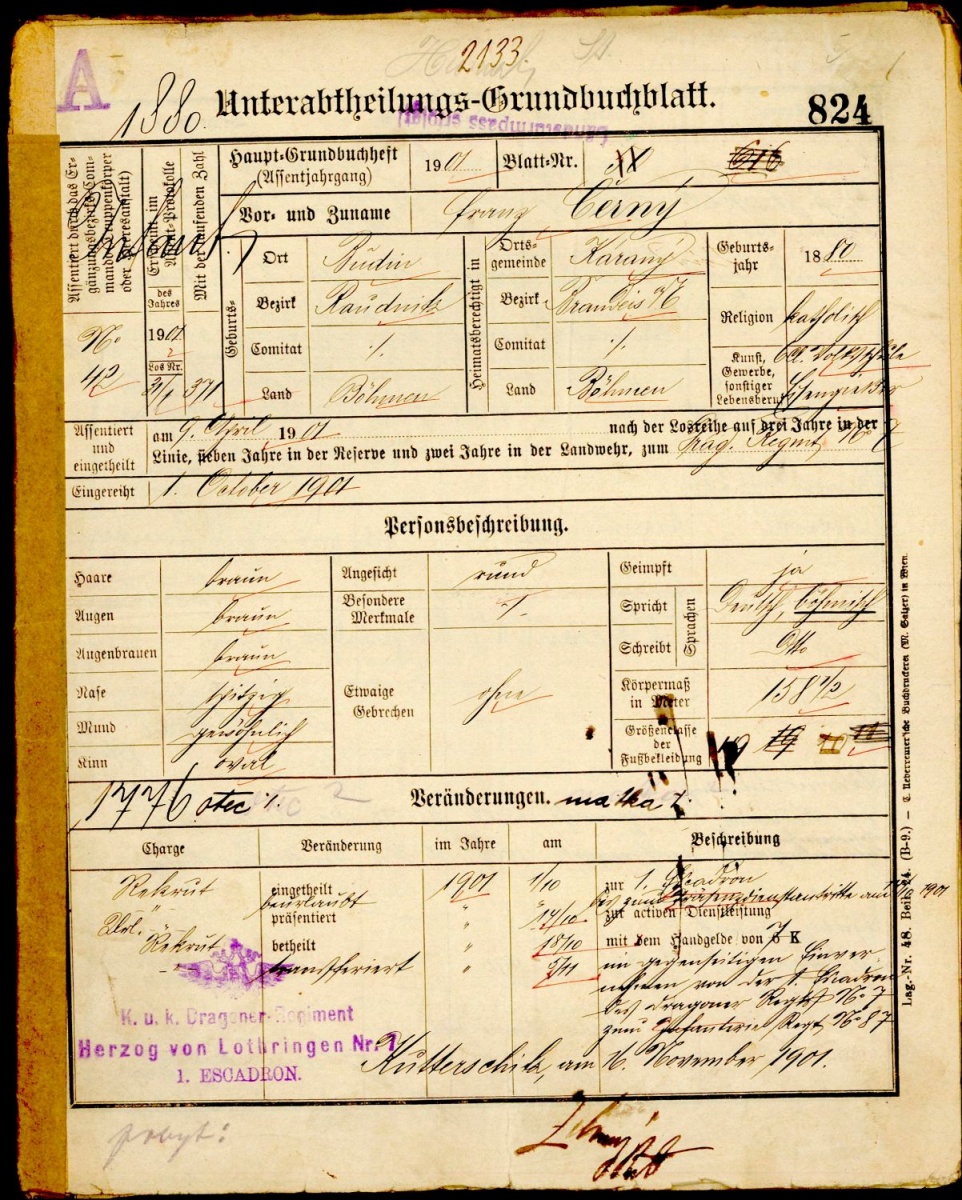 2133.
A
1880.
Unterabtheilungs-Grundbuchblatt.
824
Landsturmpass erfolgt
Assentiert durch das Ergänzungsbezirks-Commando (Truppenkörper oder Heeresanstalt)
No 42
Erscheint im Assent-Protokolle
des Jahres
1901
Los Nr.
Mit der laufenden Zahl
371
Haupt-Grundbuchheft 1901 Blatt-Nr.
(Assentjahrgang)
Vor- und Zuname Franz Černý
Geburts-
Ort Budin
Bezirk Raudnitz
Comitat ·/.
Land Böhmen
Heimatsberechtigt in
Ortsgemeinde Káraný
Bezirk Brandeis a/E
Comitat ·/.
Land Böhmen
Geburtsjahr 1880
Religion katholisch
Kunst, Gewerbe, sonstiger Lebensberuf
Volksschule
Assentiert und eingetheilt
am 9. April 1901 nach der Losreihe auf drei Jahre in der
Linie, sieben Jahre in der Reserve und zwei Jahre in der Landwehr, zum Drag. Regmt No 7
Eingereiht 1. October 1901
Personsbeschreibung.
Haare braun
Augen braun
Augenbrauen braun
Nase spitzig
Mund gewöhnlich
Kinn oval
Angesicht rund
Besondere Merkmale ·/.
Etwaige Gebrechen ohne
Geimpft ja
Spricht Deutsch, böhmisch
Schreibt Dtto
Sprachen
Körpermaß in Meter 158 1/2
Größenclasse der Fußbekleidung
1776 otec 1. Veränderungen. matka 1.
Charge Veränderung im Jahre am Beschreibung
Rekrut eingetheilt 1901 1/10 zur 1. Escadron
" beurlaubt " " bis zum Präsenzdienstantritte am 1901
Url. präsentiert " 17/10 zur activen Dienstleistung
Rekrut betheilt " 18/10 mit dem Handgelde von 7 K
transferiert " 5/11 im gegenseitigen Einver-
nehmen von der 1. Escadron
des Dragoner Regts No 7
zum Infanterie Regt No 87
K. u. k. Dragoner-Regiment
Herzog von Lothringen Nr. 7
1. ESCADRON.
Kutterschitz, am 16. November 1901.
Lag.-Nr. 48. Beil. 24. (B-9.) — C. Ueberreuter'sche Buchdruckerei (M. Salzer) in Wien.